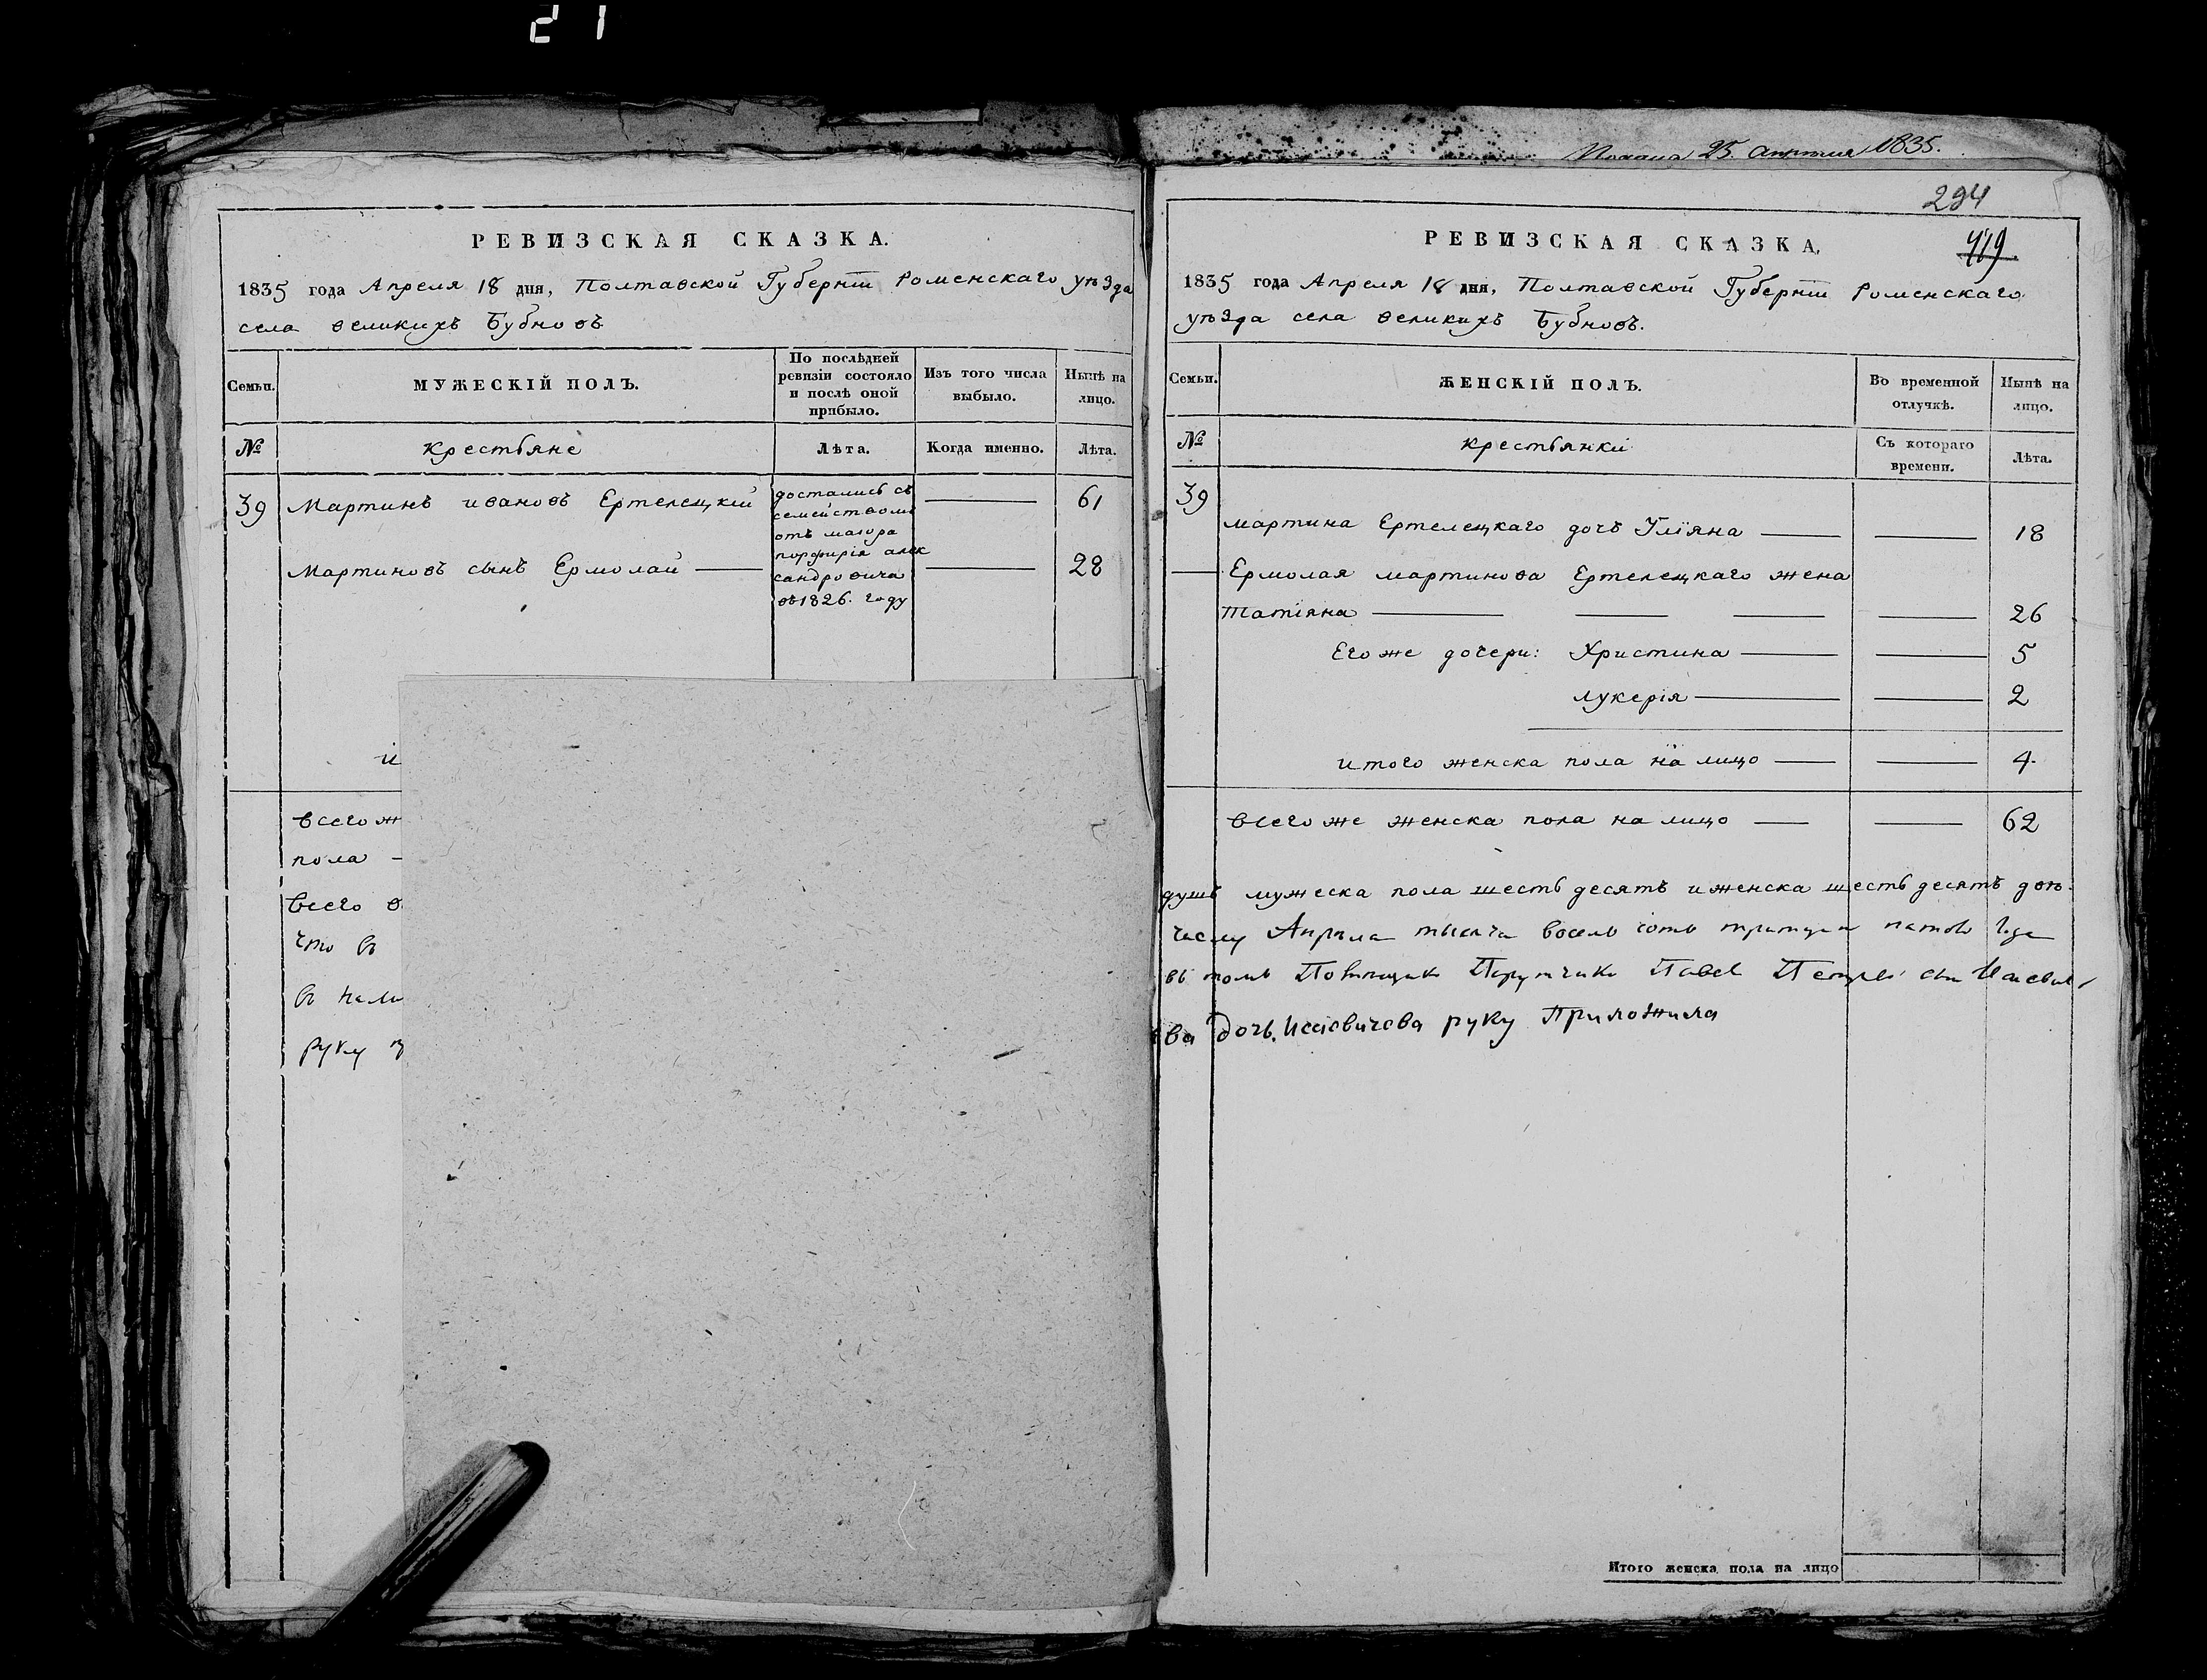 21
РЕВИЗСКАЯ СКАЗКА.
1835 года Апреля 18 дня, Полтавской Губерніи Роменскаго уѣзда
села великихъ Бубновъ
Семьи.
МУЖЕСКІЙ ПОЛЪ.
По послѣдней ревизіи состояло и послѣ оной прибыло.
Изъ того числа выбыло.
Нынѣ на лицо.
№
крестьяне
Лѣта.
Когда именно.
Лѣта.
39 Мартинъ ивановъ Ертелецкій 61
Мартиновъ сынъ Ермолай 28
достались съ
семействомъ
отъ маіора
порфирія алек
сандровича
въ 1826. году
и
всего ж
пола
всего в
что въ
въ нали
руку п
25 апреля 1835.
294
419
РЕВИЗСКАЯ СКАЗКА.
1835 года Апреля 18 дня, Полтавской Губерніи Роменскаго
уѣзда села великихъ Бубновъ.
Семьи.
ЖЕНСКІЙ ПОЛЪ.
Во временной отлучкѣ.
Нынѣ на лицо.
№
крестьянки
Съ котораго времени.
Лѣта.
39
мартина Ертелецкаго дочь Уліяна 18
Ермолая мартинова Ертелецкаго жена
Татіяна 26
Его же дочери: Христина 5
лукерія 2
итого женска пола на лицо 4.
всего же женска пола на лицо 62
душъ мужеска пола шесть десятъ и женска шесть десятъ две
числу Апреля тысяча восемь сотъ тритцать пятого года
въ томъ Помещикъ Порутчикъ Павел Петровъ сын Исаевич
ва дочь Исаевичева руку Приложила
Итого женска пола на лицо